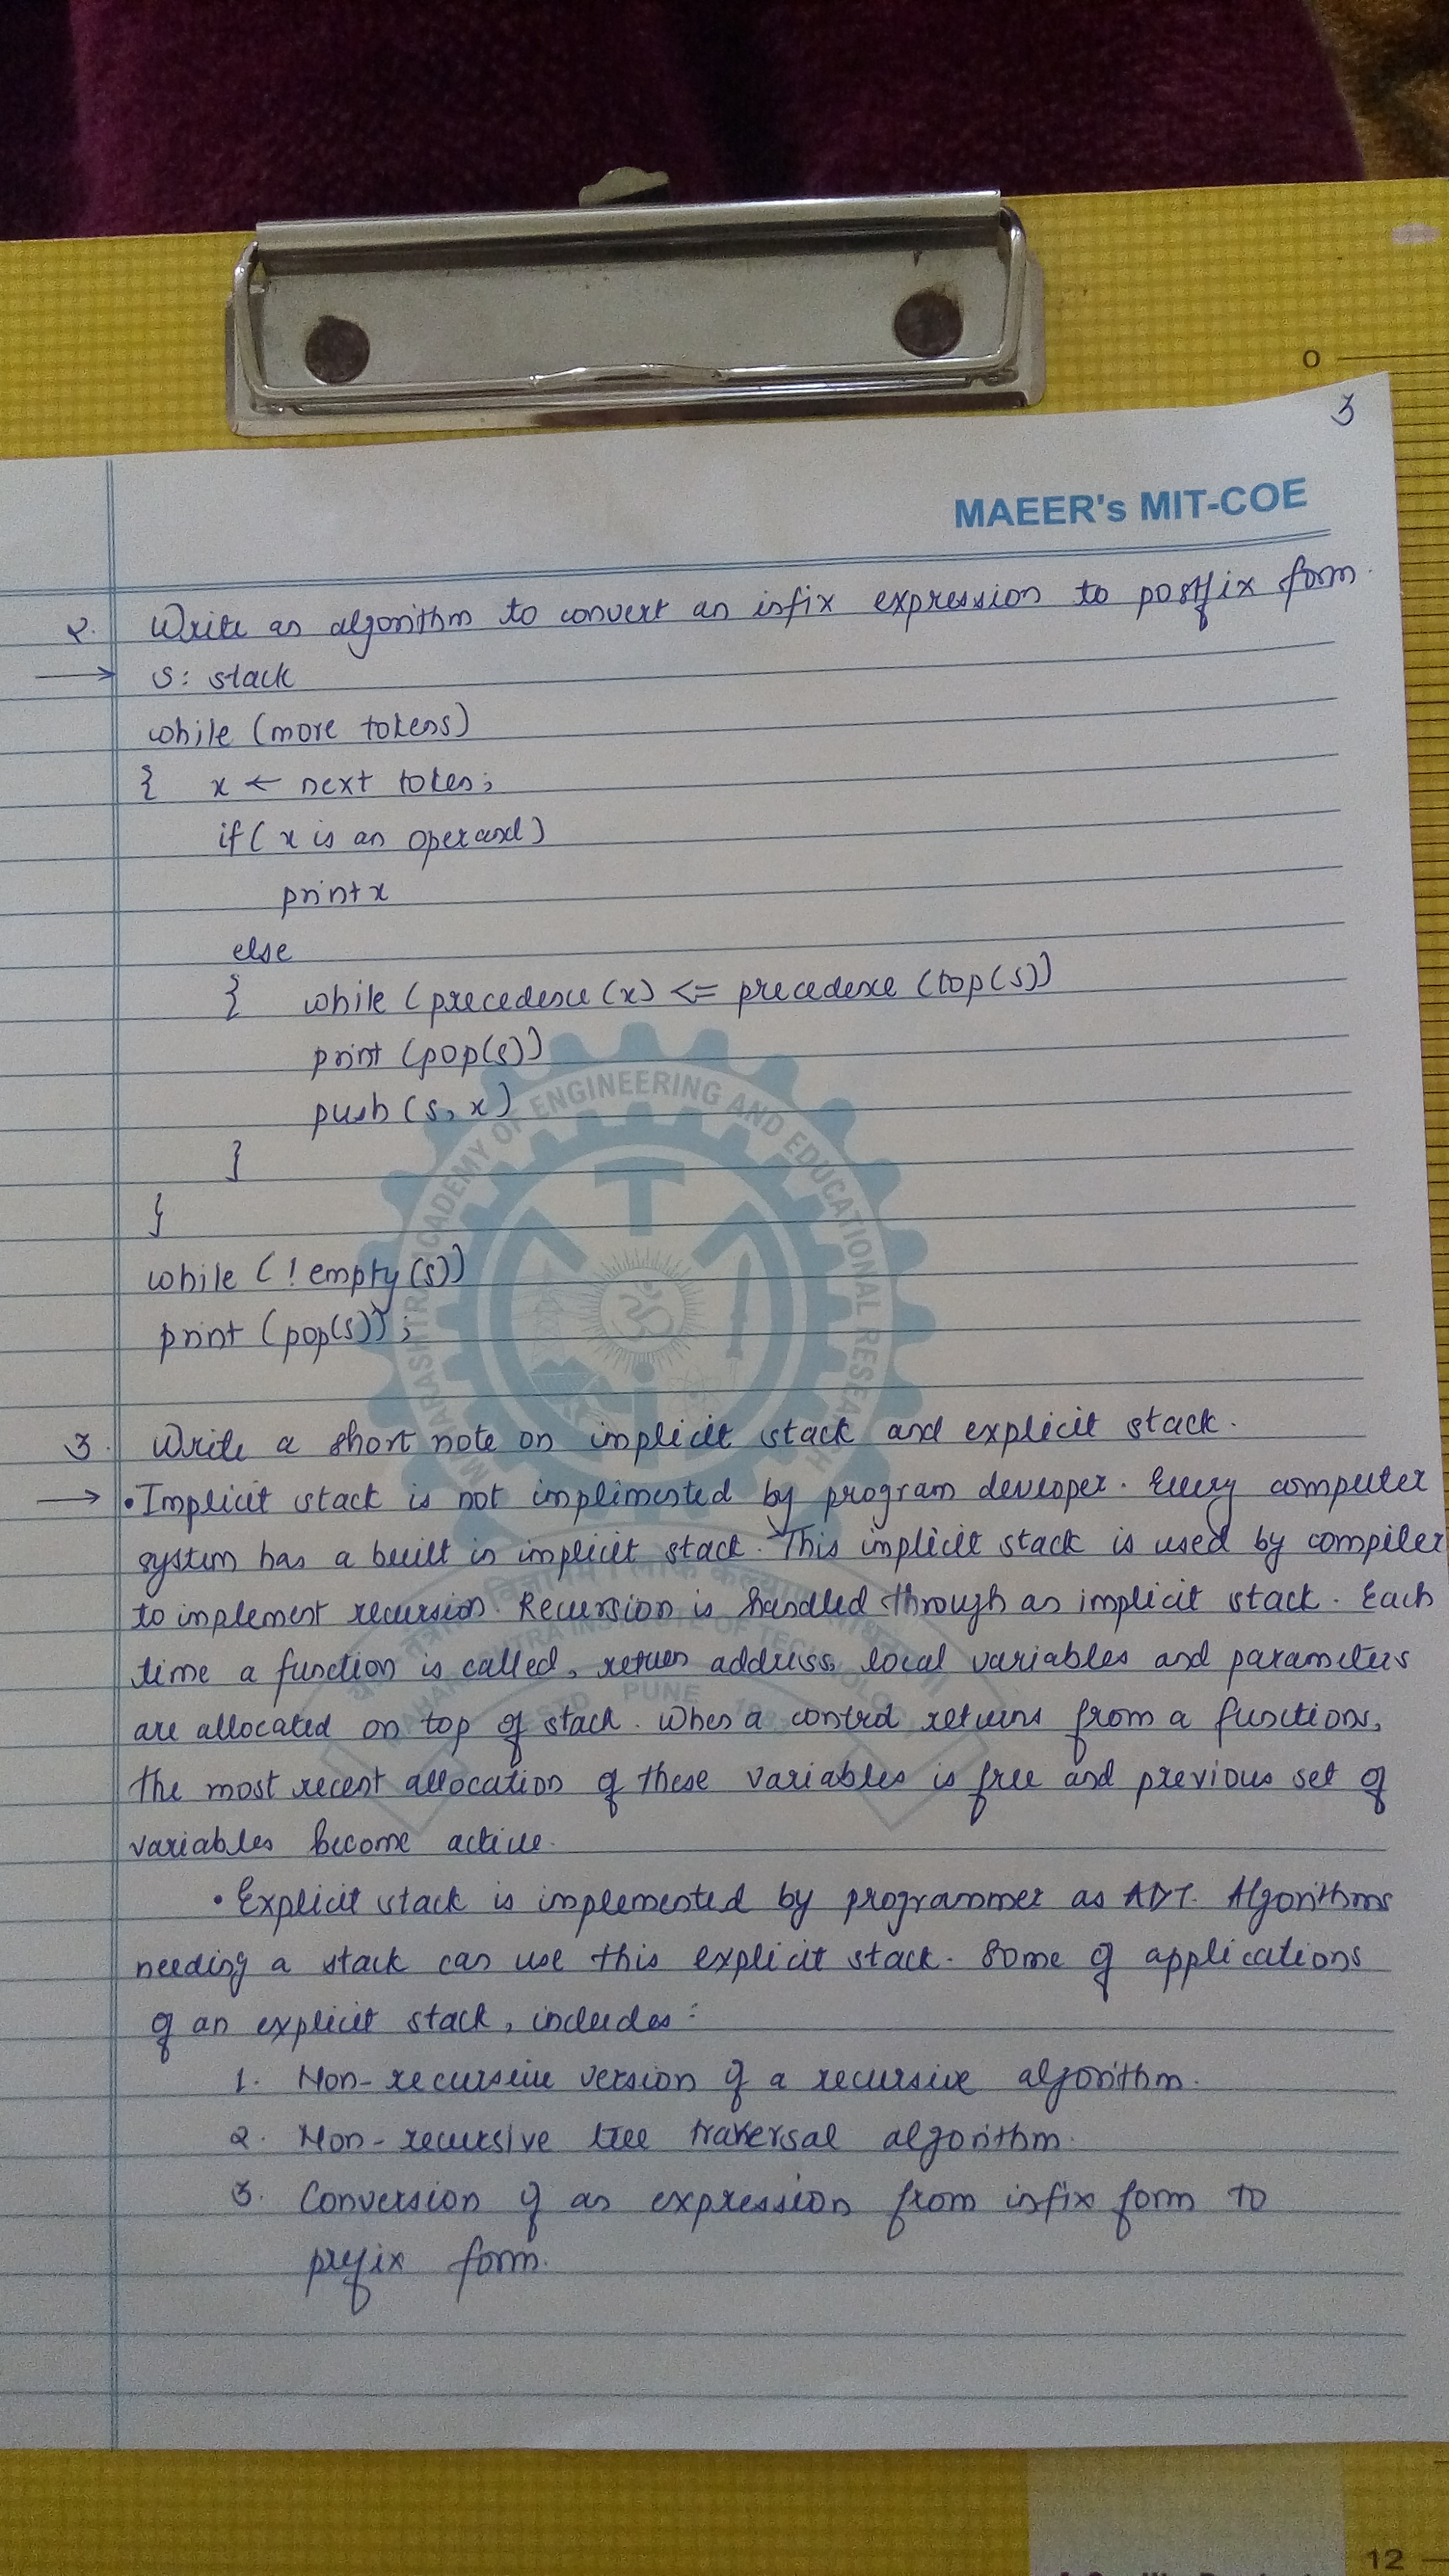 0
3
MAEER's MIT-COE
2. Write an algorithm to convert an infix expression to postfix form.
→ S: stack
while (more tokens)
{ x ← next token;
if ( x is an operand)
print x
else
{ while (precedence (x) <= precedence (top(s))
print (pop(s))
push (s, x)
}
}
while (! empty (s))
print (pop(s));
3. Write a short note on implicit stack and explicit stack.
→ • Implicit stack is not implimented by program developer. Every computer
system has a built in implicit stack. This implicit stack is used by compiler
to implement recursion. Recursion is handled through an implicit stack. Each
time a function is called, return address, local variables and parameters
are allocated on top of stack. When a control returns from a functions,
the most recent allocation of these variables is free and previous set of
variables become active.
• Explicit stack is implemented by programmer as ADT. Algorithms
needing a stack can use this explicit stack. Some of applications
of an explicit stack, includes:
1. Non-recursive version of a recursive algorithm.
2. Non-recursive tree traversal algorithm.
3. Conversion of an expression from infix form to
prefix form.
MAHARASHTRA ACADEMY OF ENGINEERING AND EDUCATIONAL RESEARCH
MAHARASHTRA INSTITUTE OF TECHNOLOGY
PUNE
12